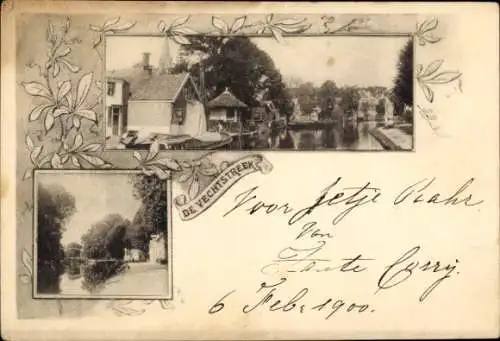 DE VECHTSTREEK
Voor Jetje Rahr
van
Tante Corry.
6 Febr 1900.